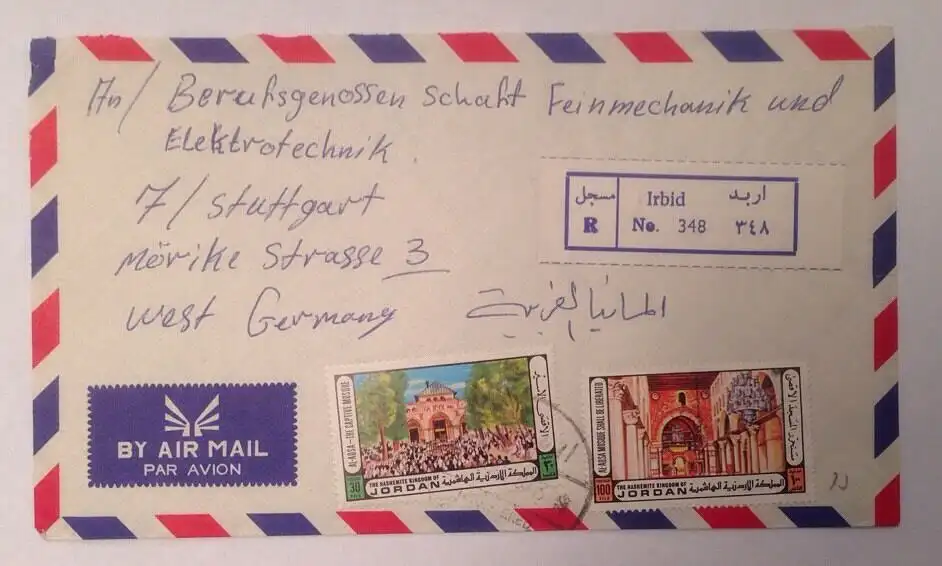 An/ Berufsgenossenschaft Feinmechanik und
Elektrotechnik.
7/ Stuttgart
Mörike Strasse 3
West Germany المانيا الغربية
مسجل
R
Irbid اربد
No. 348 ٣٤٨
BY AIR MAIL
PAR AVION
AL-AQSA—THE CAPTIVE MOSQUE
30
FILS
THE HASHEMITE KINGDOM OF
JORDAN
المملكة الاردنية الهاشمية
٣٠
AL-AQSA MOSQUE SHALL BE LIBERATED
100
FILS
THE HASHEMITE KINGDOM OF
JORDAN
المملكة الاردنية الهاشمية
١٠٠